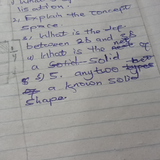 is action.
2, Explain the concept
space.
3, What is the def
between 2b and 3b
4) What is the net of
a solid solid
5) 5. any two types
of a known solid
shape.